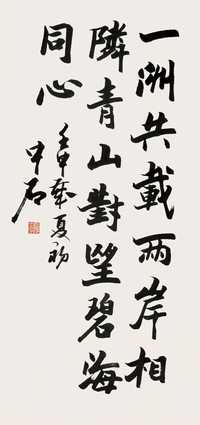 一洲共載兩岸相
隣青山對望碧海
同心
壬申歲夏初
中石